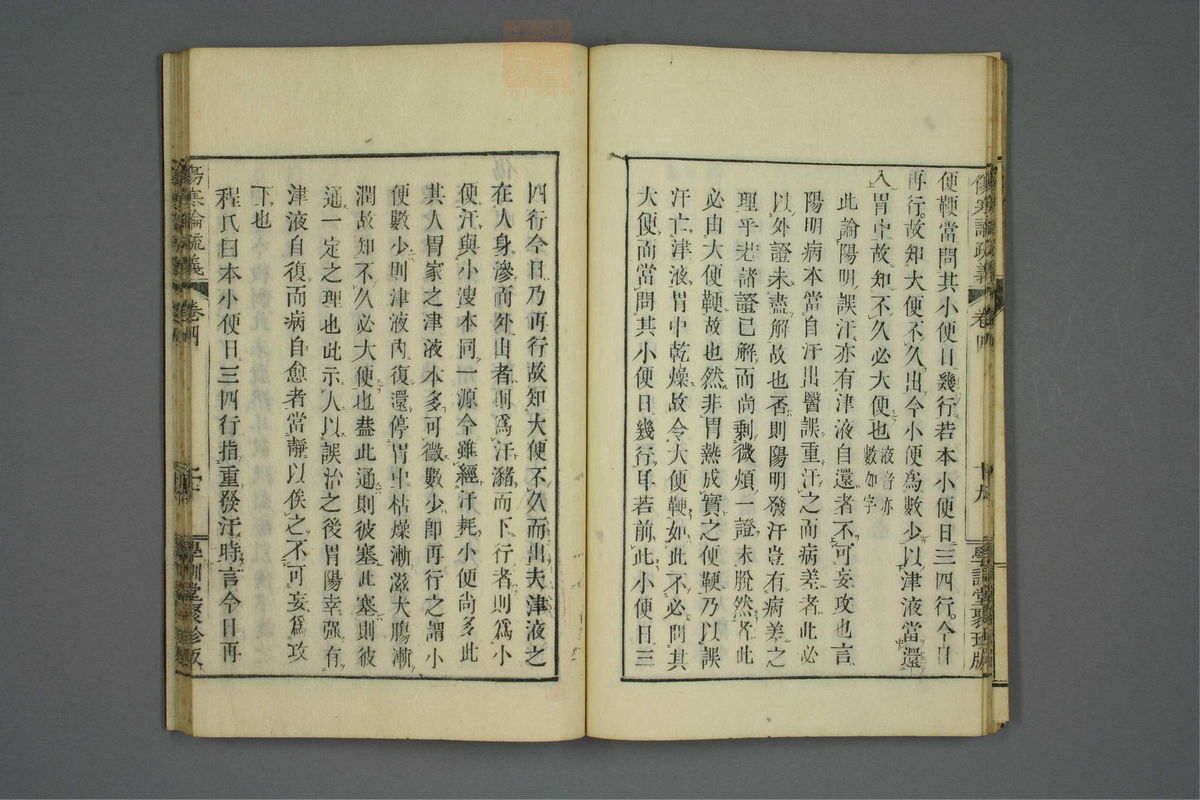 便鞕當問其小便日幾行若本小便日三四行今日
再行故知大便不久出今小便爲數少以津液當還
入胃中故知不久必大便也液音亦數如字
此論陽明誤汗亦有津液自還者不可妄攻也言
陽明病本當自汗出醫誤重汗之而病差者此必
以外證未盡解故也否則陽明發汗豈有病差之
理乎若諸證已解而尚剩微煩一證未脫然者此
必由大便鞕故也然非胃熱成實之便鞕乃以誤
汗亡津液胃中乾燥故令大便鞕如此不必問其
大便而當問其小便日幾行耳若前此小便日三
四行今日乃再行故知大便不久而出夫津液之
在人身滲而外出者則爲汗瀦而下行者則爲小
便汗與小溲本同一源今雖經汗耗小便尚多此
其人胃家之津液本多可徵數少即再行之謂小
便數少則津液內復還停胃中枯燥漸滋大腸漸
潤故知不久必大便也蓋此通則彼塞此塞則彼
通一定之理也此示人以誤治之後胃陽幸强有
津液自復而病自愈者當靜以俟之不可妄爲攻
下也
程氏曰本小便日三四行指重發汗時言今日再
傷寒論疏義
卷四
學訓堂聚珍版